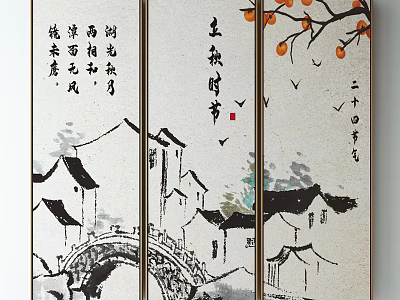 二十四节气
立秋时节
湖光秋月
两相和，
潭面无风
镜未磨。